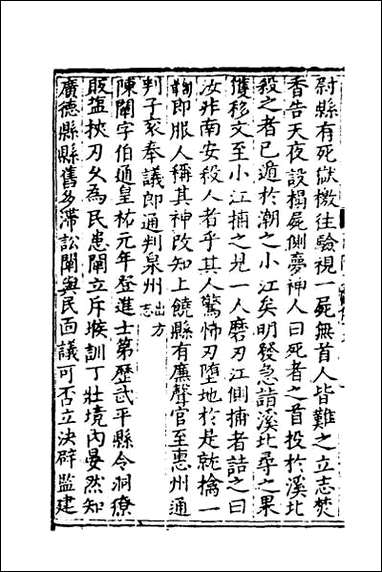 尉縣有死獄檄往驗視一屍無首人皆難之立志焚
香告天夜設榻屍側夢神人曰死者之首投於溪北
殺之者已遁於潮之小江矣明發急請溪北尋之果
獲移文至小江捕之見一人磨刃江側捕者詰之曰
汝非南安殺人者乎其人驚怖刃墮地於是就擒一
鞫即服人稱其神改知上饒縣有廉聲官至惠州通
判子袤奉議郎通判泉州出方志
陳闡字伯通皇祐元年登進士第歷武平縣令洞獠
販塩挾刀久為民患闡立斥堠訓丁壯境内晏然知
廣德縣縣舊多滯訟闡與民面議可否立決辟監建